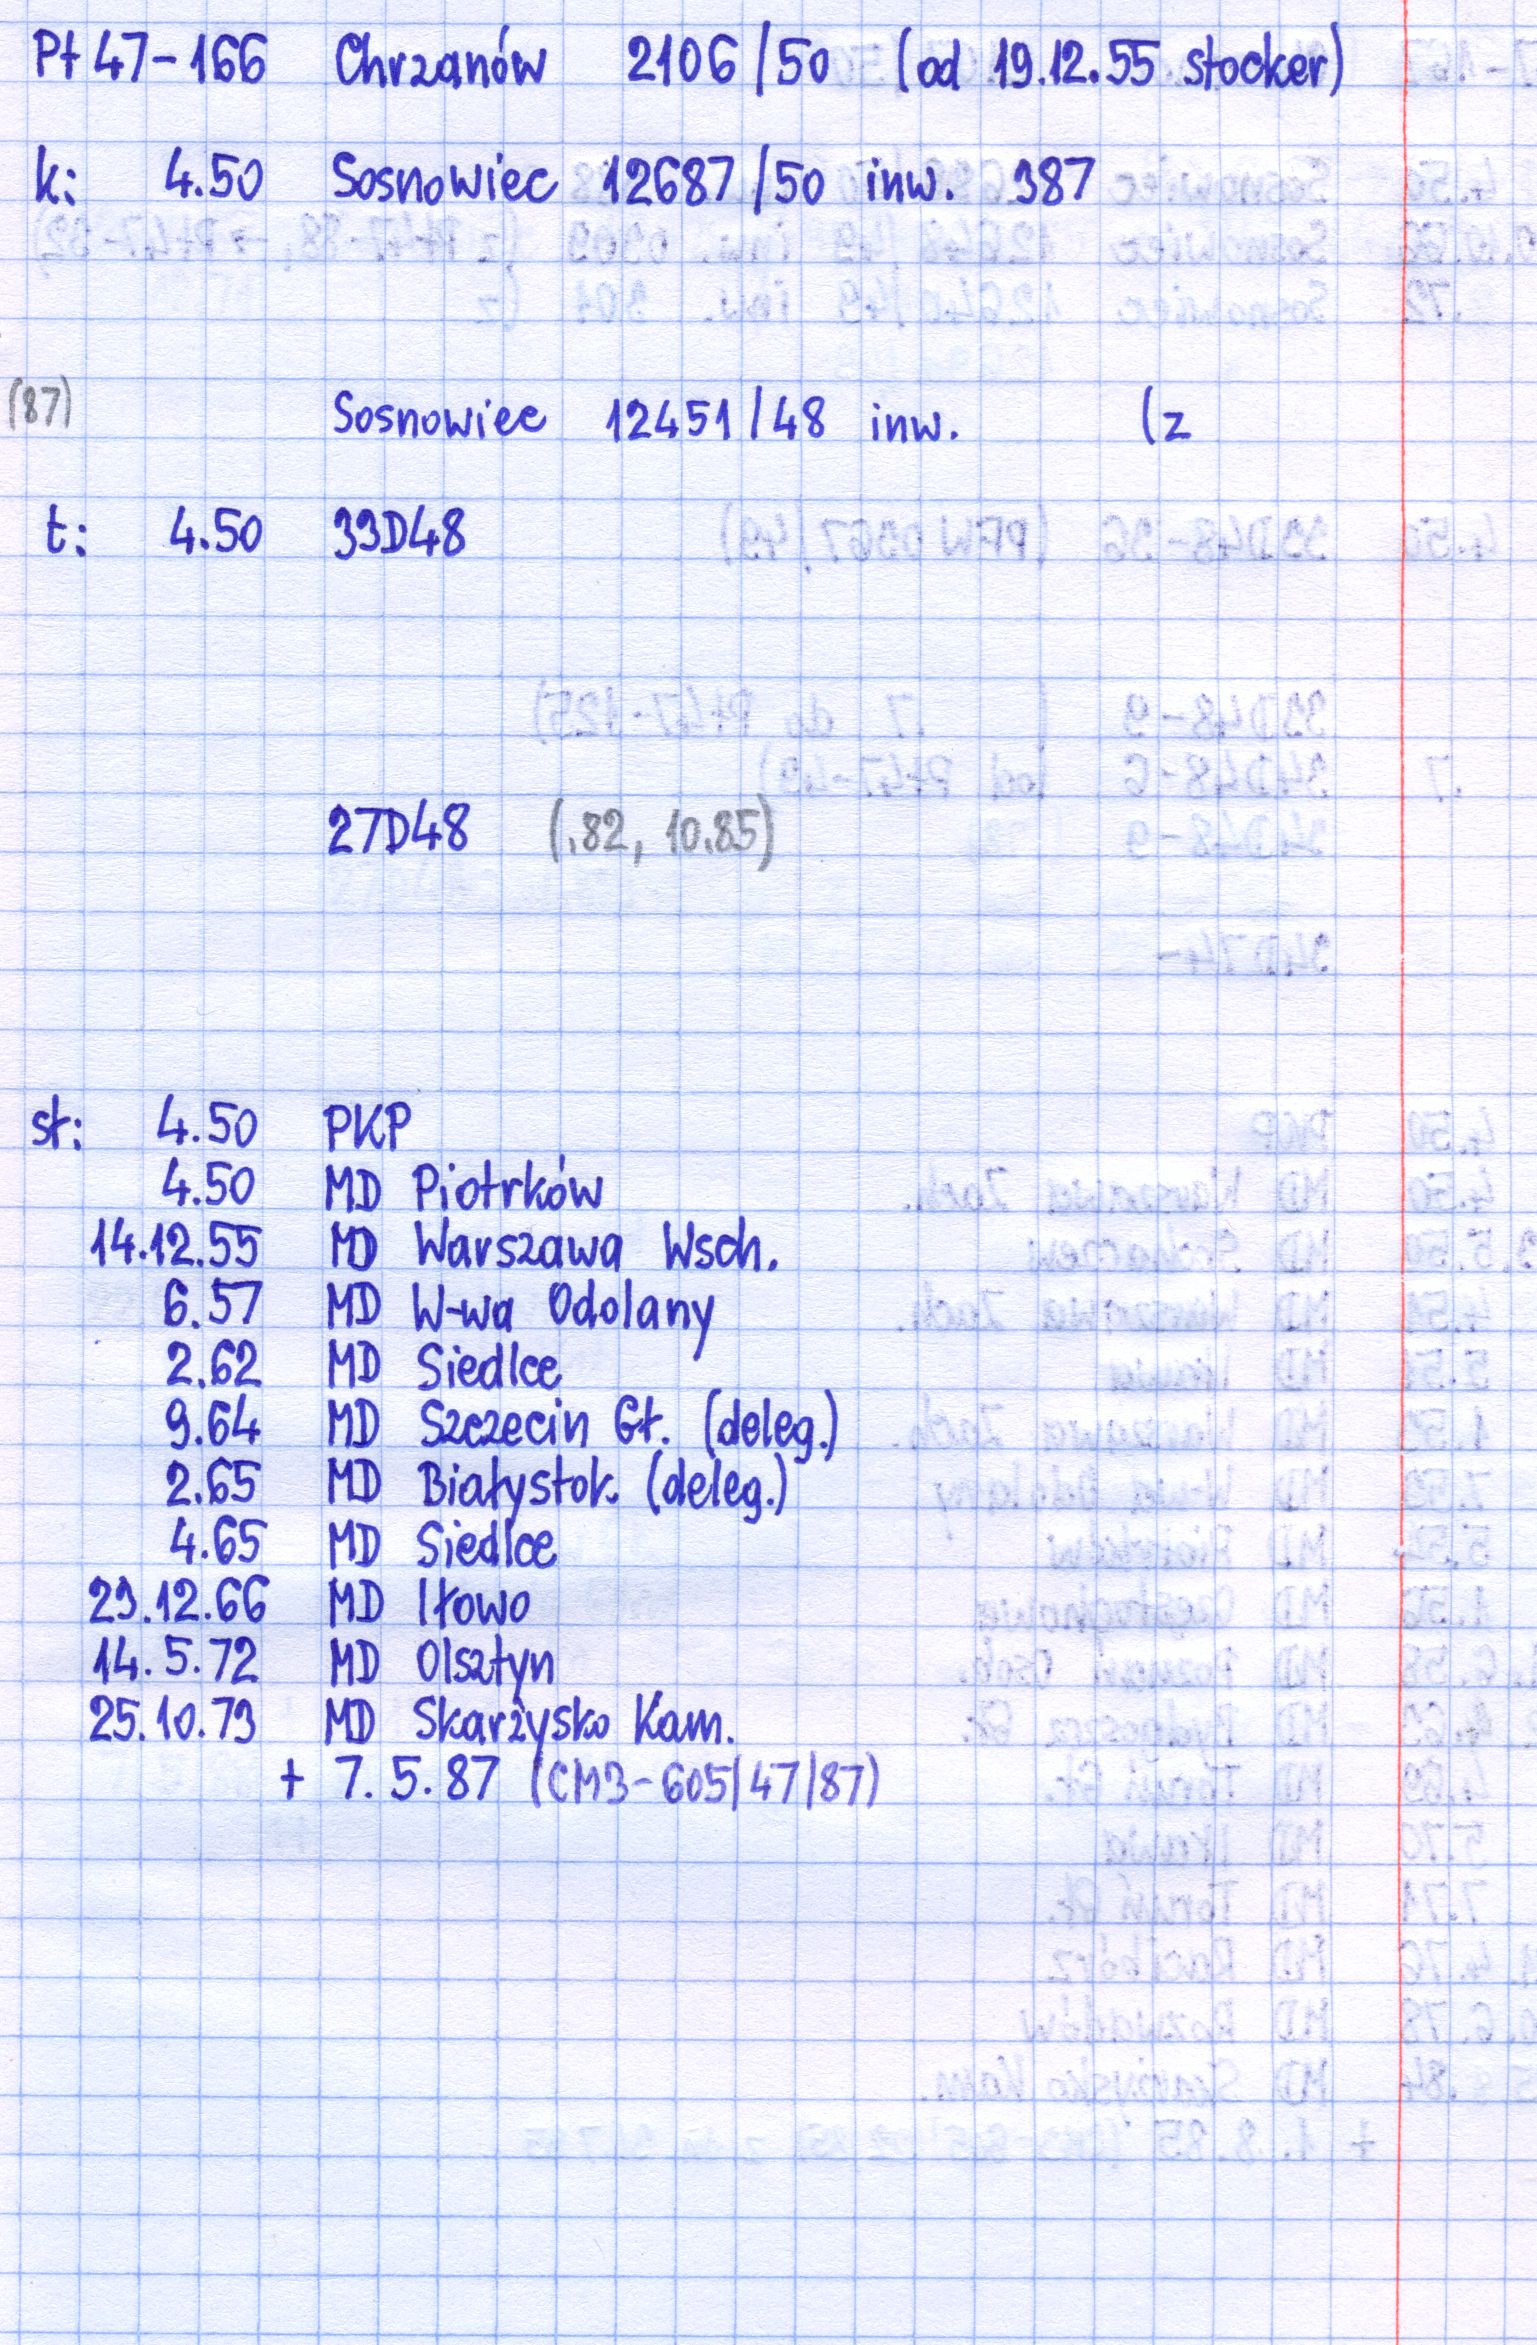 Pt 47-166 Chrzanów 2106/50 (od 19.12.55 stocker)
k: 4.50 Sosnowiec 12687/50 inw. 387
(87) Sosnowiec 12451/48 inw. (z
t: 4.50 33D48
27D48 (.82, 10.85)
st: 4.50 PKP
4.50 MD Piotrków
14.12.55 MD Warszawa Wsch.
6.57 MD W-wa Odolany
2.62 MD Siedlce
9.64 MD Szczecin Gł. (deleg.)
2.65 MD Białystok (deleg.)
4.65 MD Siedlce
29.12.66 MD Iłowo
14.5.72 MD Olsztyn
25.10.73 MD Skarżysko Kam.
+ 7.5.87 (CM3-605/47/87)